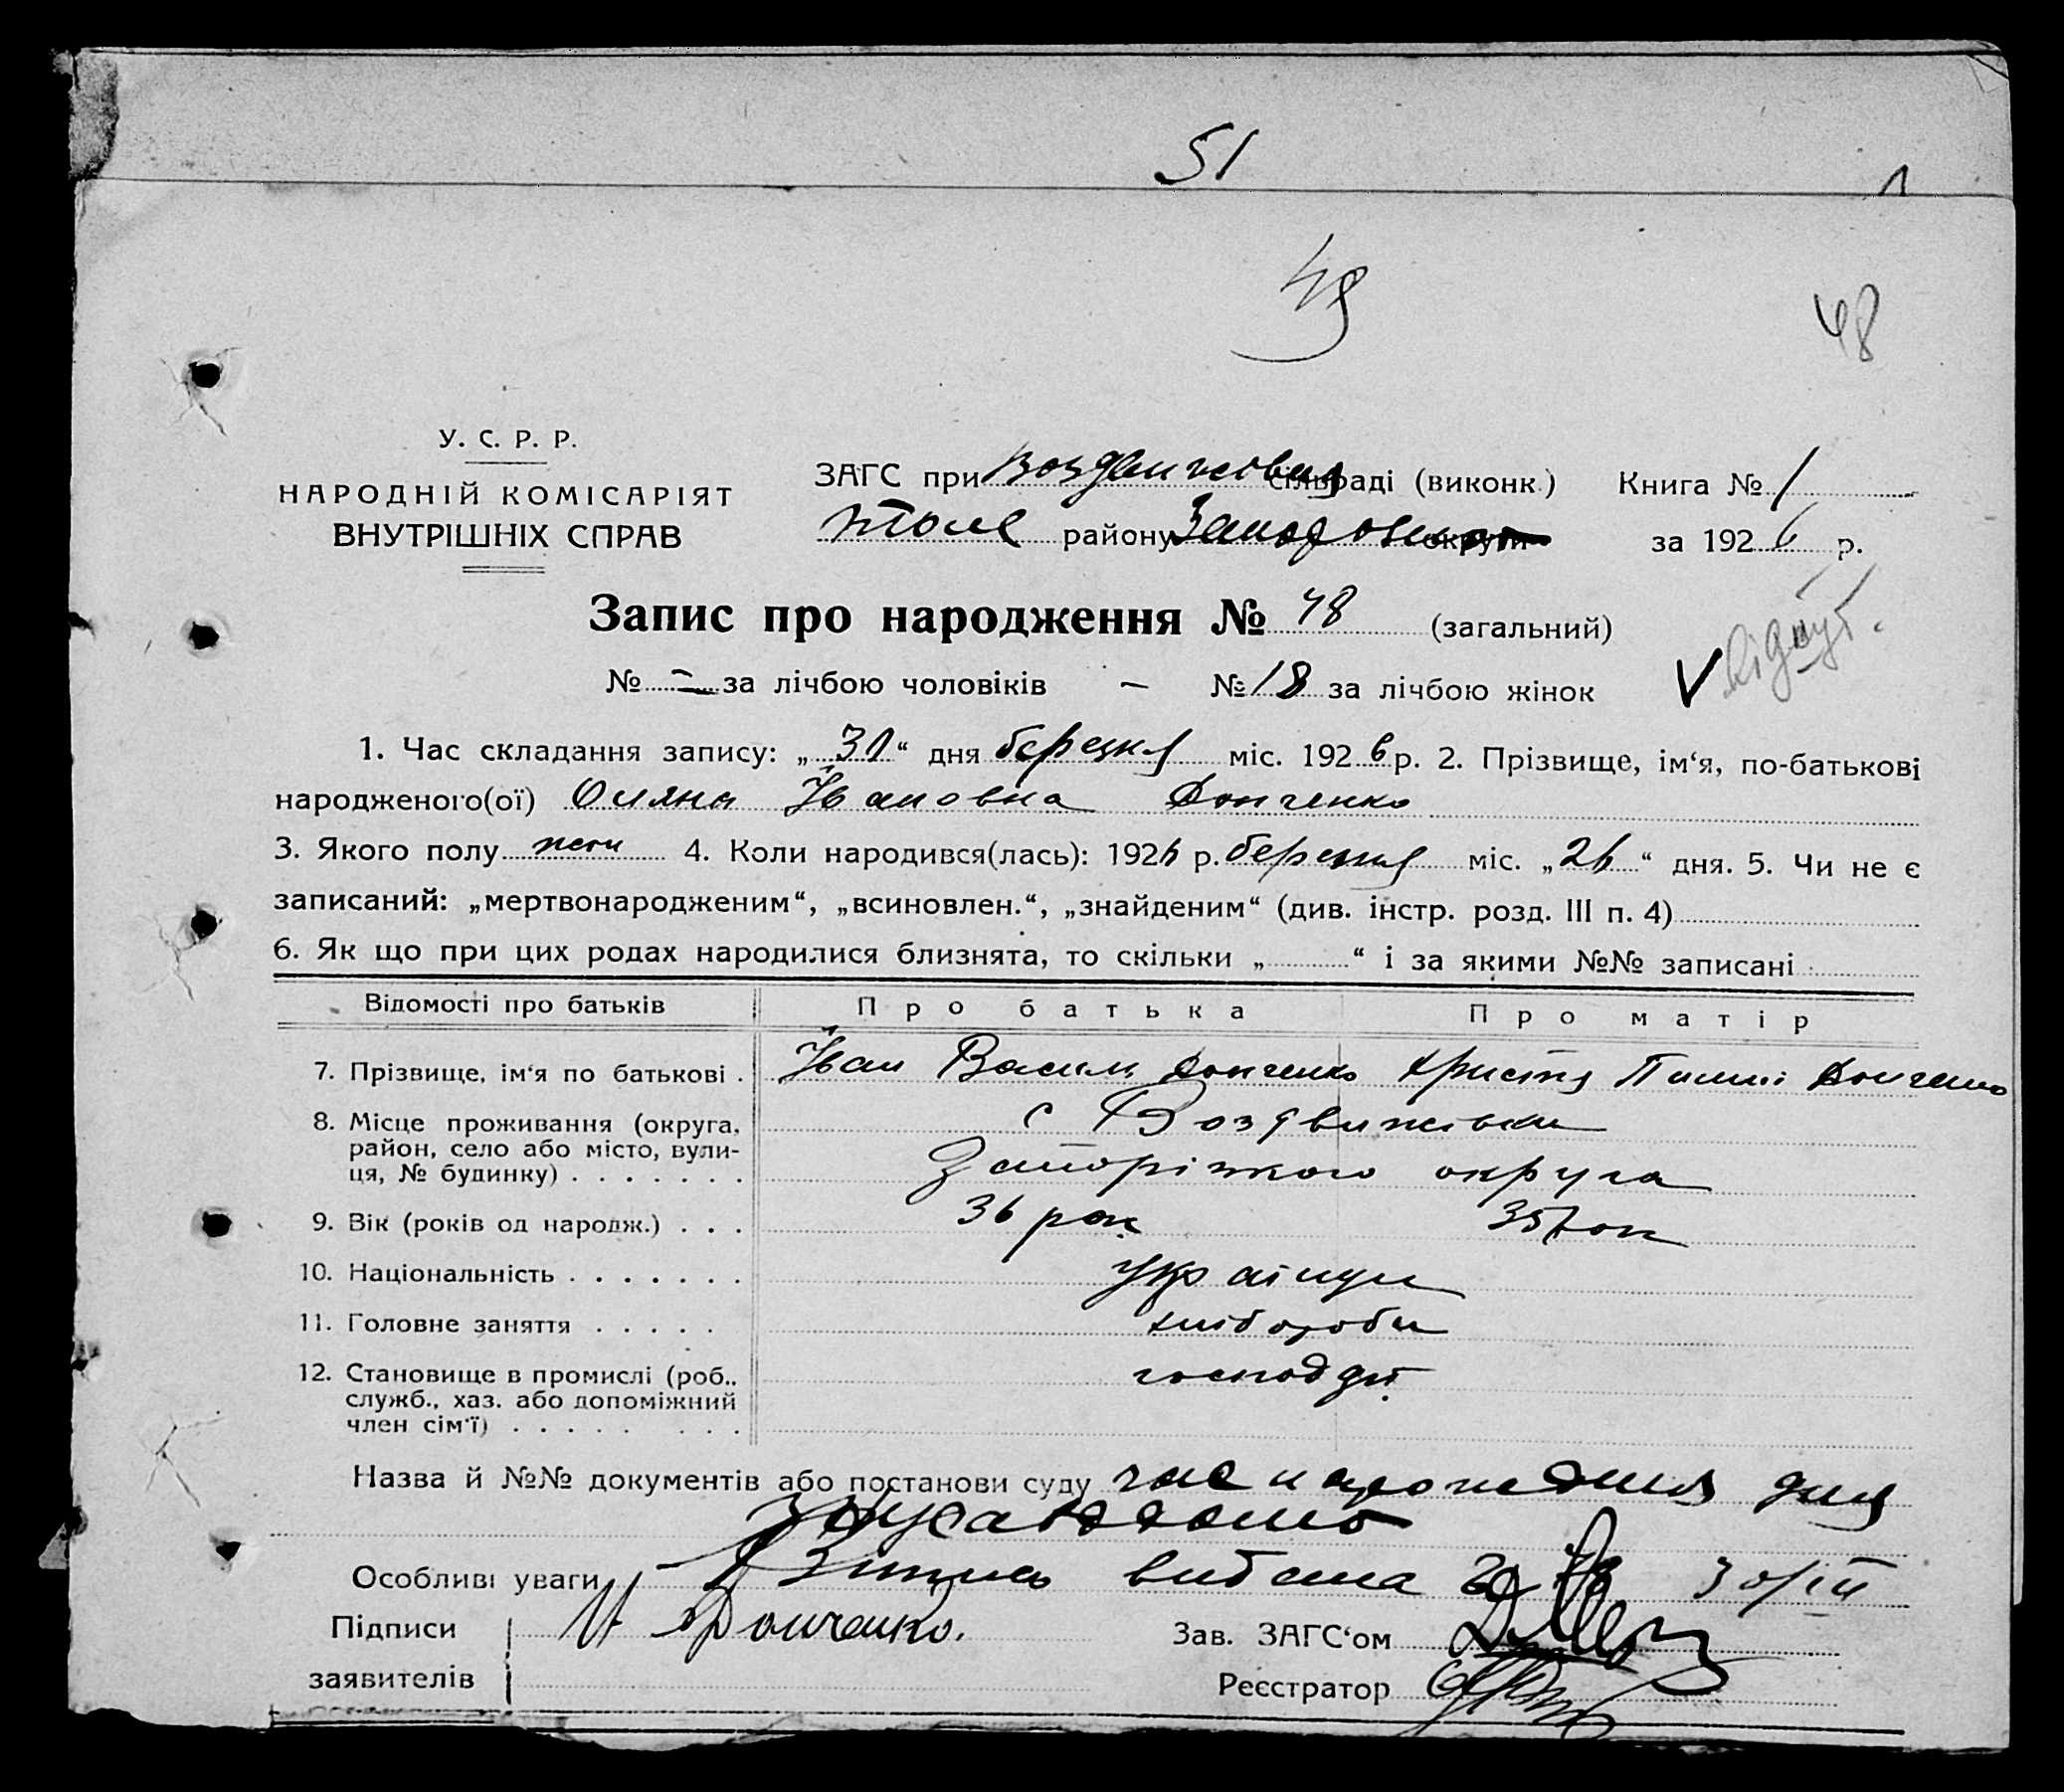 51
1
49
48
У. С. Р. Р.
НАРОДНІЙ КОМІСАРІЯТ
ВНУТРІШНІХ СПРАВ
ЗАГС при Воздвижовка сільраді (виконк.) Книга № 1
району округи за 1926 р.
Запис про народження № 48 (загальний)
№ – за лічбою чоловіків – № 18 за лічбою жінок
V
1. Час складання запису: „31“ дня березня міс. 1926 р. 2. Прізвище, ім‘я, по-батькові
народженого(ої) Оляна Ивановна Донченко
3. Якого полу жен 4. Коли народився(лась): 1926 р. березня міс. „26“ дня. 5. Чи не є
записаний: „мертвонародженим“, „всиновлен.“, „знайденим“ (див. інстр. розд. III п. 4)
6. Як що при цих родах народилися близнята, то скільки „ “ і за якими №№ записані
Відомості про батьків Про батька Про матір
7. Прізвище, ім‘я по батькові . Иван Василь Донченко Христя Донченко
8. Місце проживання (округа, с Воздвижівки
район, село або місто, вули-
ця, № будинку) . . . . . . . Запоріжкого округа
9. Вік (років од народж.) . . . 36 рок 35 рок
10. Національність . . . . . . . українци
11. Головне заняття . . . . . хлібороби
12. Становище в промислі (роб.,
служб., хаз. або допоміжний
член сім‘ї) . . . . . . . .
Назва й №№ документів або постанови суду
Особливі уваги видана
Підписи И Донченко. Зав. ЗАГС‘ом
заявителів Реєстратор